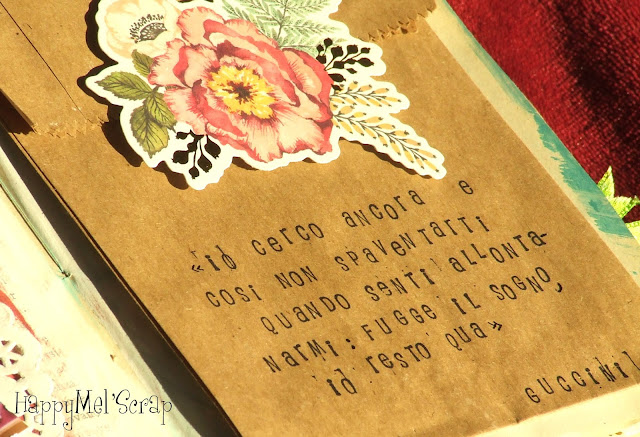 «iO cerco ancora e
cosi non spaventarti
quando senti allonta-
narmi: fugge il sogno,
io resto qua»
GUCCINI
HappyMel'Scrap